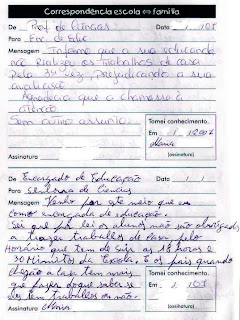 Correspondência escola ⇔ família
De Prof de Ciências Data 1 107
Para Enc. de Educ
Mensagem Informo que a sua educanda
não realizou os trabalhos de casa
pela 3ª vez, prejudicando a sua
avaliação.
Agradecia que a chamasse à
atenção
Sem outro assunto.
Tomei conhecimento.
Em 1 1200
Maria
Assinatura (assinatura)
De Encarregado de Educação Data / /
Para senhora de Ciencias
Mensagem Venho por este meio que eu
como encarregada de educação.
Sei que por lei os alunos não são obrigados
a trazer traballos de casa pelo
Horário que tem de sair as 18 horas e
30 Minutos da Escola. E os pais quando
chegão a casa tem mais
que fazer do que saber se
eles tem traballos ou não.
Tomei conhecimento.
Em 1 107
Assinatura Maria (assinatura)